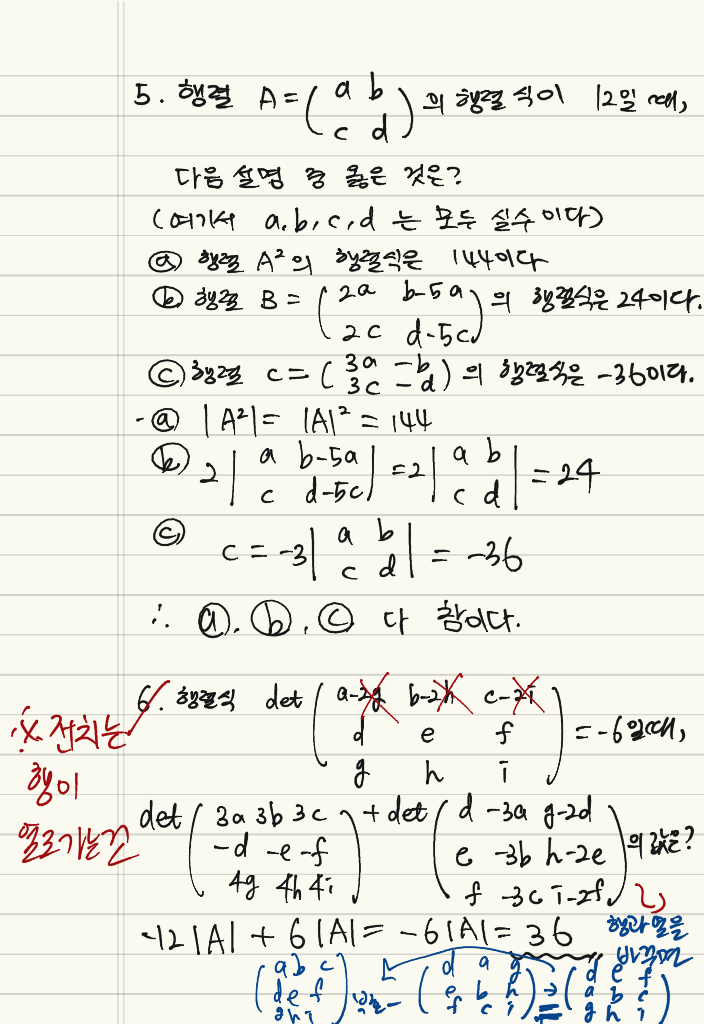 5. 행렬 A = ( a b
c d ) 의 행렬식이 12일 때,
다음 설명 중 옳은 것은?
(여기서 a, b, c, d 는 모두 실수이다)
ⓐ 행렬 A² 의 행렬식은 144이다
ⓑ 행렬 B = ( 2a b-5a
2c d-5c ) 의 행렬식은 24이다.
ⓒ 행렬 c = ( 3a -b
3c -d ) 의 행렬식은 -36이다.
- ⓐ |A²| = |A|² = 144
ⓑ 2 | a b-5a
c d-5c | = 2 | a b
c d | = 24
ⓒ c = -3 | a b
c d | = -36
∴ ⓐ, ⓑ, ⓒ 다 참이다.
6. 행렬식 det ( a-2g b-2h c-2i
d e f
g h i ) = -6 일때,
※ 전치는
행이
열로가는것
det ( 3a 3b 3c
-d -e -f
4g 4h 4i ) + det ( d -3a g-2d
e -3b h-2e
f -3c i-2f ) 의 값은?
-12|A| + 6|A| = -6|A| = 36
행과 열을
바꾸면
( a b c
d e f
g h i ) - ( d a g
e b h
f c i ) → = ( d e f
a b c
g h i )